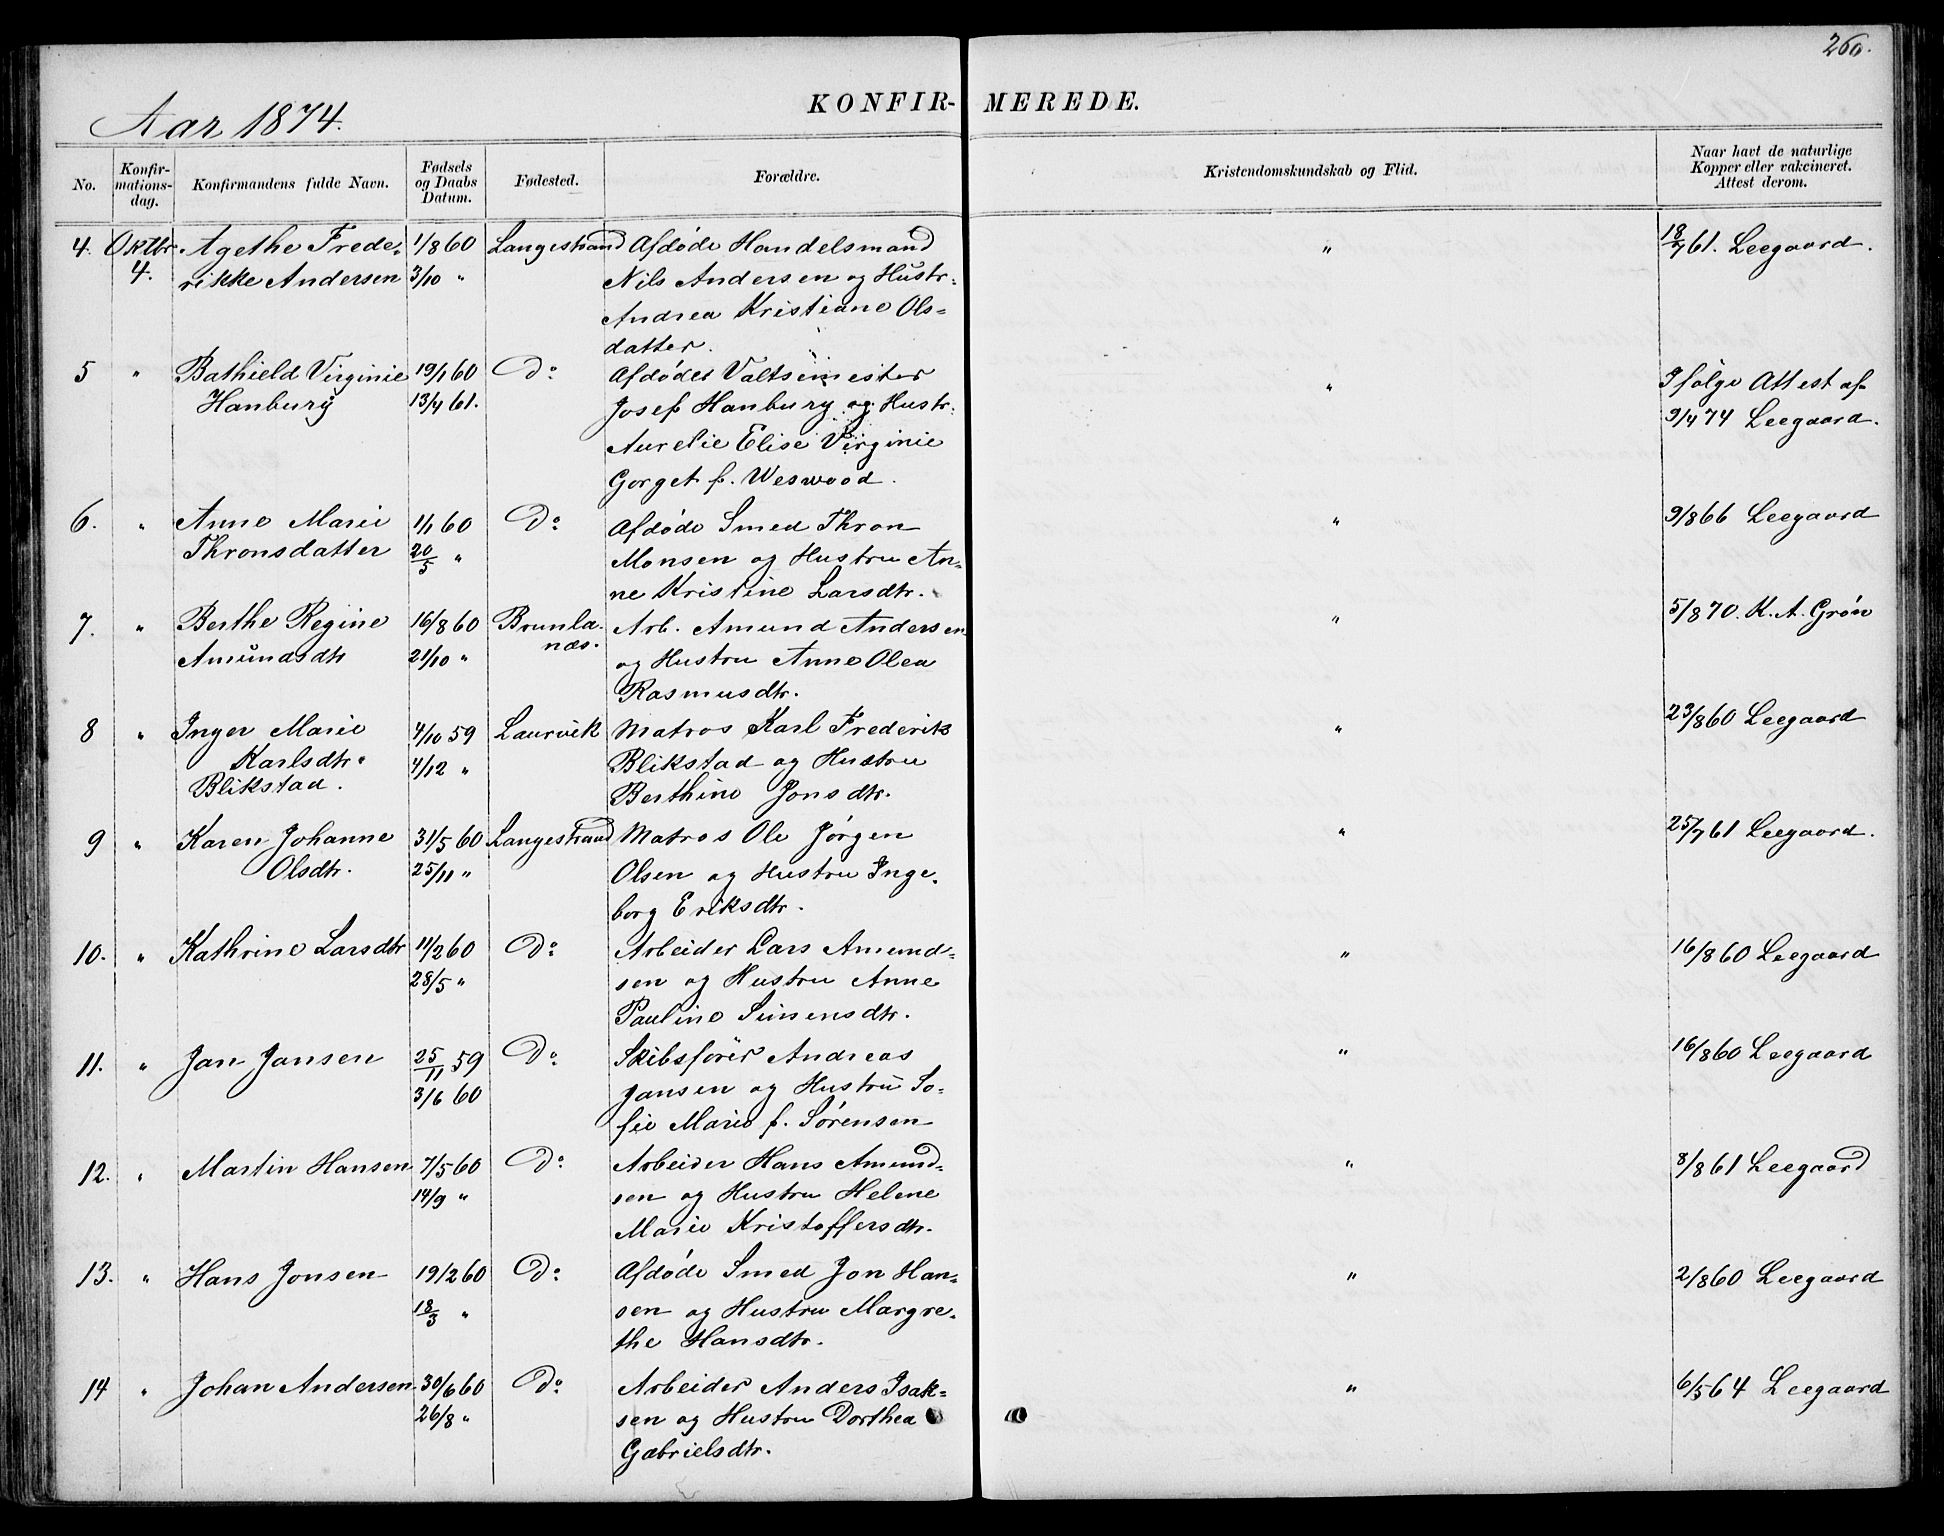 260.
Aar 1874.
KONFIR- MEREDE.
No.
Konfir-
mations-
dag.
Konfirmandens fulde Navn.
Fødsels
og Daabs
Datum.
Fødested.
Forældre.
Kristendomskundskab og Flid.
Naar havt de naturlige
Kopper eller vakcineret.
Attest derom.
4. Oktbr Agethe Frede- 1/8 60 Langestrand Afdøde Handelsmand " 18/7 61. Leegaard.
4. rikke Andersen 3/10 " Nils Andersen og Hustr:
Andrea Kristiane Ols-
datter.
5 " Bathield Virginie 19/1 60 Do Afdødes Valtsemester " Ifølge Attest af
Hanbury 13/4 61. Josef Hanbury og Hustr: 9/4 74 Leegaard.
Aurelie Elise Virginie
Gorget f. Weswood.
6. " Anne Marie 1/1 60 Do Afdøde Smed Thron " 9/8 66 Leegaard
Thronsdatter 20/5 " Monsen og Hustru An-
ne Kristine Larsdtr.
7. " Berthe Regine 16/8 60 Brunla- Arb. Amund Andersen " 5/8 70. K. A. Grøn
Amundsdtr 21/10 " næs. og Hustru Anne Olea
Rasmusdtr.
8 " Inger Marie 4/10 59 Laurvik Matros Karl Frederik " 23/8 60 Leegaard
Karlsdtr. 4/12 " Blikstad og Hustru
Blikstad. Berthine Jonsdtr.
9 " Karen Johanne 31/5 60 Langestrand Matros Ole Jørgen " 25/7 61 Leegaard.
Olsdtr. 25/11 " Olsen og Hustru Inge-
borg Eriksdtr.
10. " Kathrine Larsdtr 11/2 60 Do Arbeider Lars Amund- " 16/8 60 Leegaard
28/5 " sen og Hustru Anne
Pauline Simensdtr.
11. " Jan Jansen 25/11 59 Do Skibsfører Andreas " 16/8 60 Leegaard
3/6 60 Jansen og Hustru So-
fie Marie f. Sørensen
12. " Martin Hansen 7/5 60 Do Arbeider Hans Amund- " 8/8 61 Leegaard
14/9 " sen og Hustru Helene
Marie Kristoffersdtr.
13. " Hans Jonsen 19/2 60 Do Afdøde Smed Jon Han- " 2/8 60 Leegaard
18/3 " sen og Hustru Margre-
the Hansdtr.
14 " Johan Andersen 30/6 60 Do Arbeider Anders Isak- " 6/5 64 Leegaard
26/8 " sen og Hustru Dorthea
Gabrielsdtr.